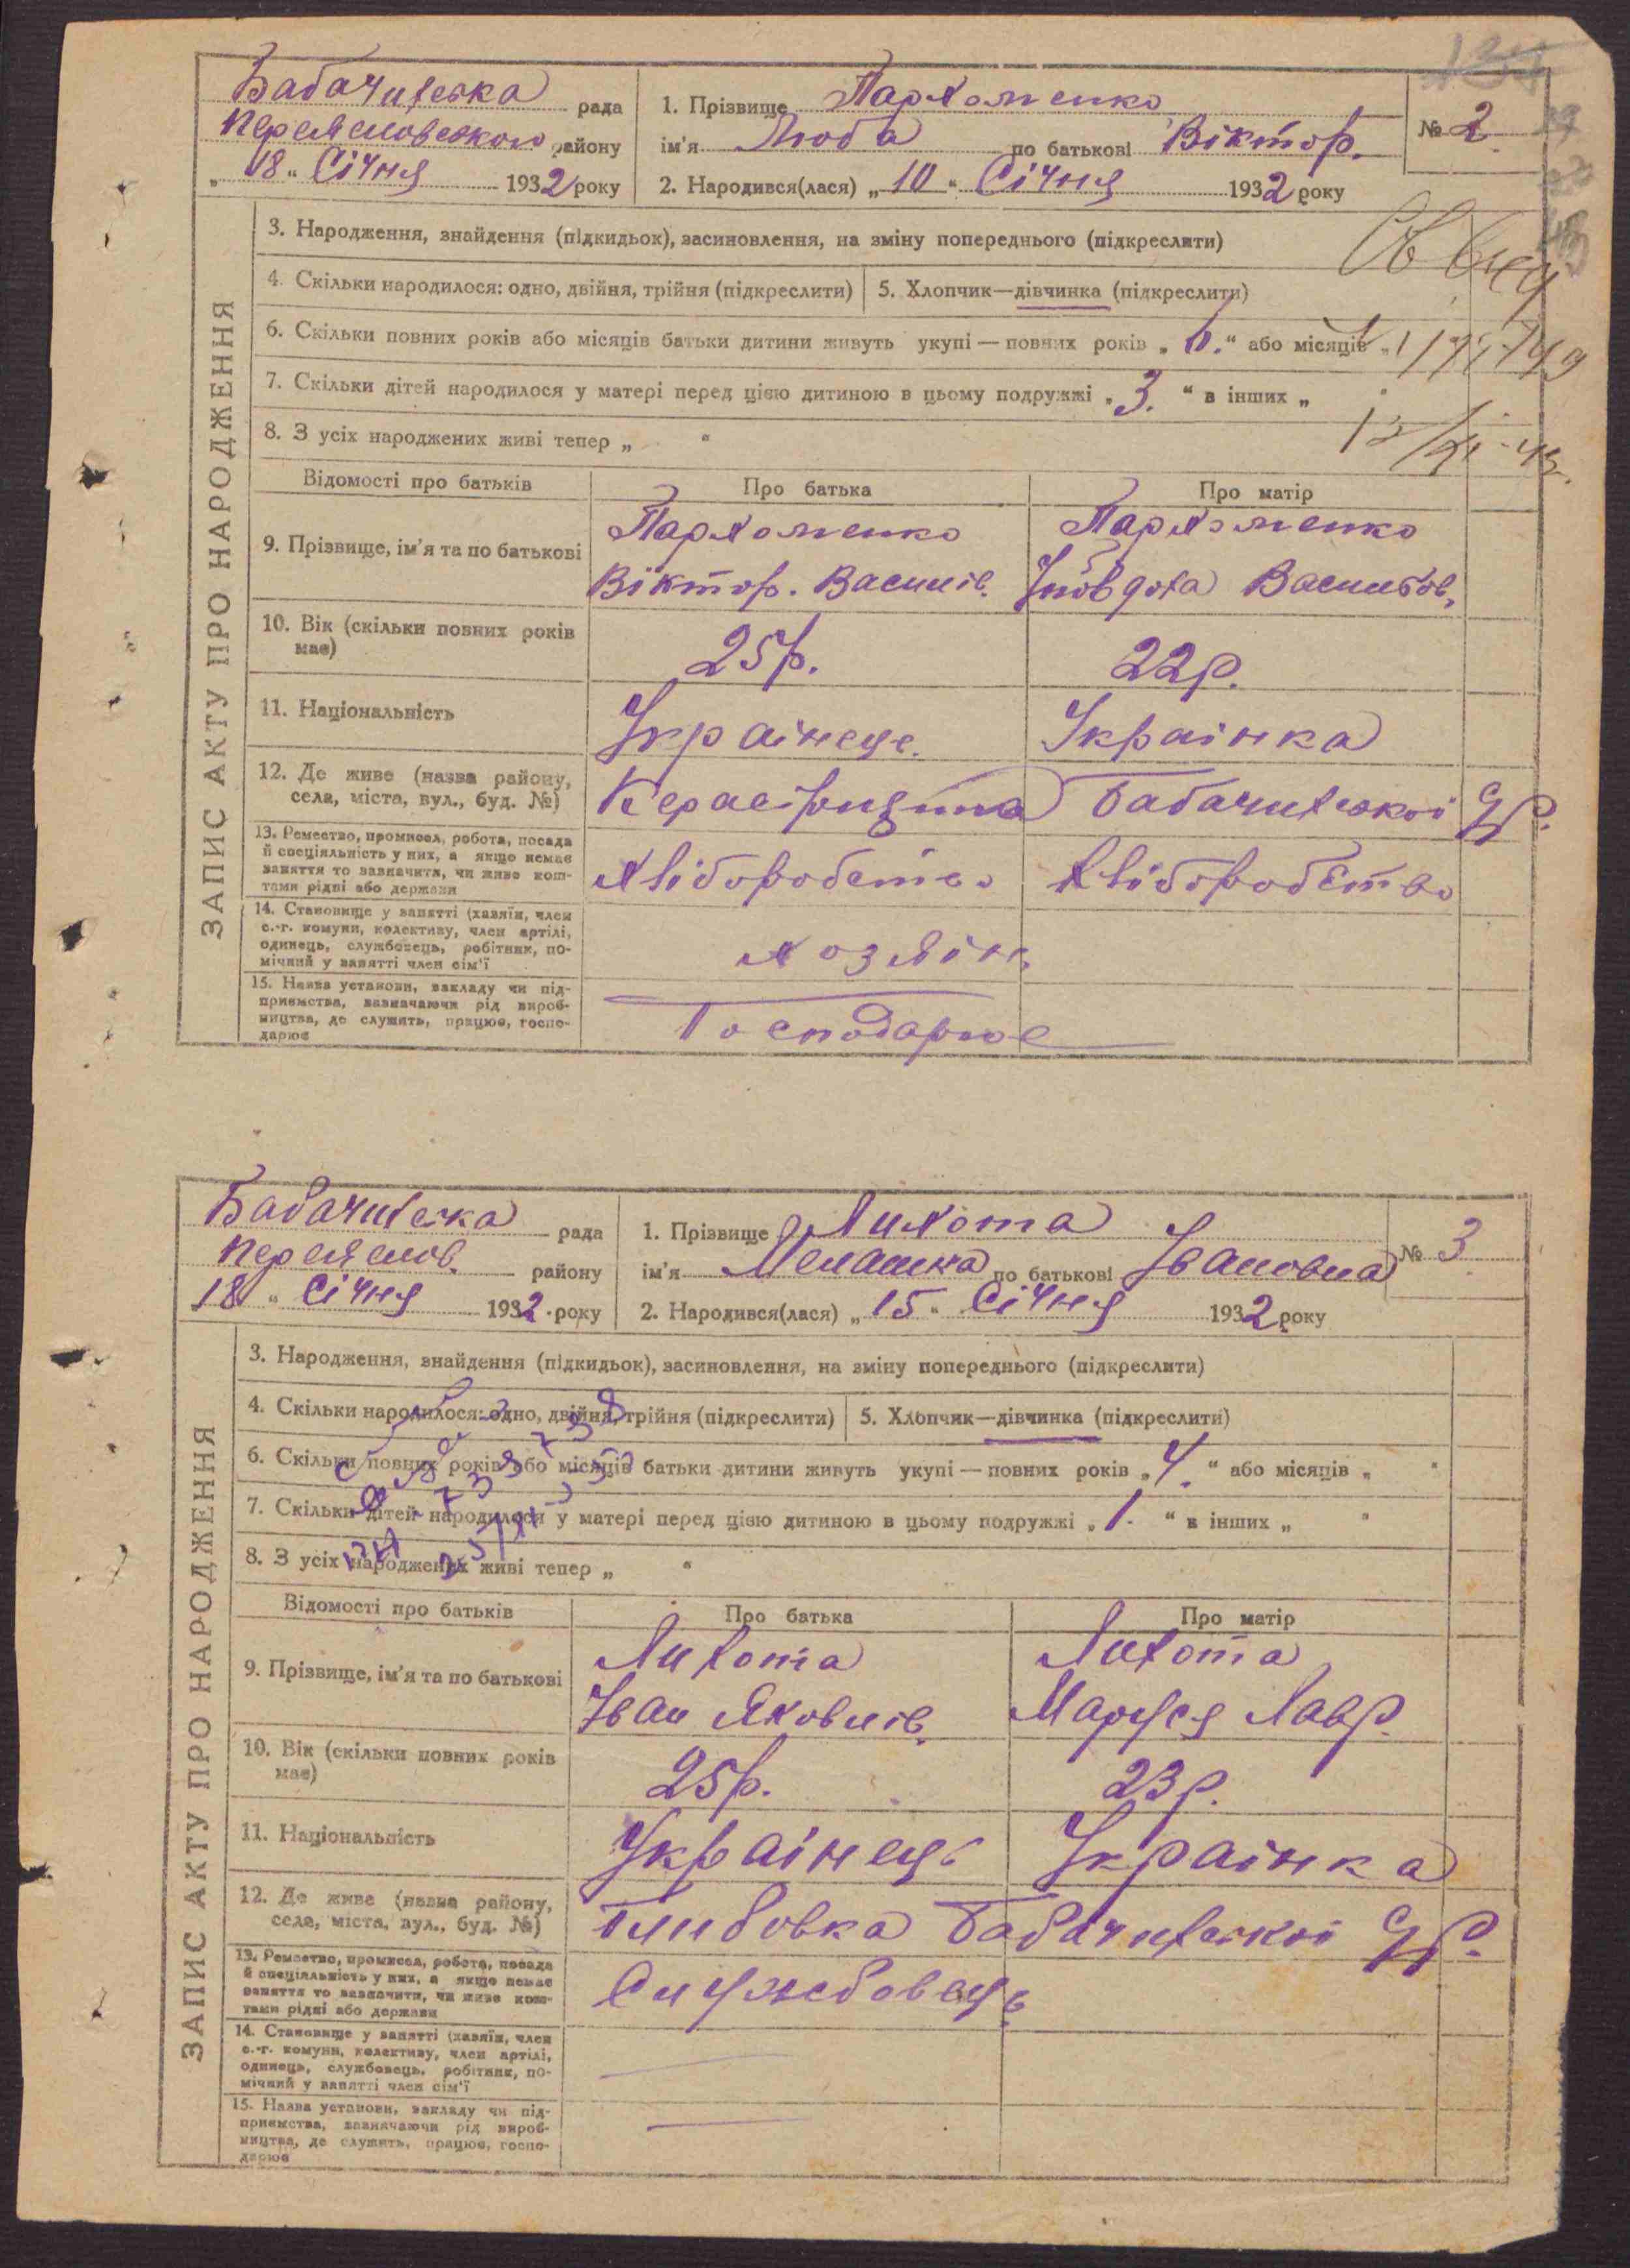 Бабачихська рада
Переяславського району
„18“ Січня 1932 року
1. Прізвище Пархоменко
ім'я Люба по батькові Віктор.
№ 2.
2. Народився(лася) „10“ Січня 1932 року
ЗАПИС АКТУ ПРО НАРОДЖЕННЯ
3. Народження, знайдення (підкидьок), засиновлення, на зміну попереднього (підкреслити)
4. Скільки народилося: одно, двійня, трійня (підкреслити) 5. Хлопчик—дівчинка (підкреслити)
6. Скільки повних років або місяців батьки дитини живуть укупі — повних років „6.“ або місяців „
7. Скільки дітей народилося у матері перед цією дитиною в цьому подружжі „3.“ в інших „ “
8. З усіх народжених живі тепер „ “
Відомості про батьків Про батька Про матір
9. Прізвище, ім'я та по батькові
Пархоменко Пархоменко
Віктор. Василів. Васильов.
10. Вік (скільки повних років має) 25р. 22р.
11. Національність Українець Українка
12. Де живе (назва району, села, міста, вул., буд. №) Бабачихської
13. Ремество, промисел, робота, посада
й спеціяльність у них, а якщо немає
заняття то зазначити, чи живе кош-
тами рідні або держави
Хліборобство Хліборобство
14. Становище у занятті (хазяїн, член
с.-г. комуни, колективу, член артілі,
одинець, службовець, робітник, по-
мічний у занятті член сім'ї
хозяін
15. Назва установи, закладу чи під-
приємства, зазначаючи рід вироб-
ництва, де служить, працює, госпо-
дарює
Господарює
Бабачихська рада
Переяслов. району
18 “ Січня 1932 року
1. Прізвище Лихота
ім'я Мелашка по батькові Івановна
№ 3
2. Народився(лася) „15“ Січня 1932 року
ЗАПИС АКТУ ПРО НАРОДЖЕННЯ
3. Народження, знайдення (підкидьок), засиновлення, на зміну попереднього (підкреслити)
4. Скільки народилося: одно, двійня, трійня (підкреслити) 5. Хлопчик—дівчинка (підкреслити)
6. Скільки повних років або місяців батьки дитини живуть укупі — повних років „4.“ або місяців „ “
7. Скільки дітей народилося у матері перед цією дитиною в цьому подружжі „1.“ в інших „ “
8. З усіх народжених живі тепер „ “
Відомості про батьків Про батька Про матір
9. Прізвище, ім'я та по батькові
Лихота Лихота
Іван Яковлів. Маруся Лавр.
10. Вік (скільки повних років має) 25р. 23р.
11. Національність Українець Українка
12. Де живе (назва району, села, міста, вул., буд. №) Глибовка Бабачихської
13. Ремество, промисел, робота, посада
й спеціяльність у них, а якщо немає
заняття то зазначити, чи живе кош-
тами рідні або держави
Службовець
14. Становище у занятті (хазяїн, член
с.-г. комуни, колективу, член артілі,
одинець, службовець, робітник, по-
мічний у занятті член сім'ї
15. Назва установи, закладу чи під-
приємства, зазначаючи рід вироб-
ництва, де служить, працює, госпо-
дарює